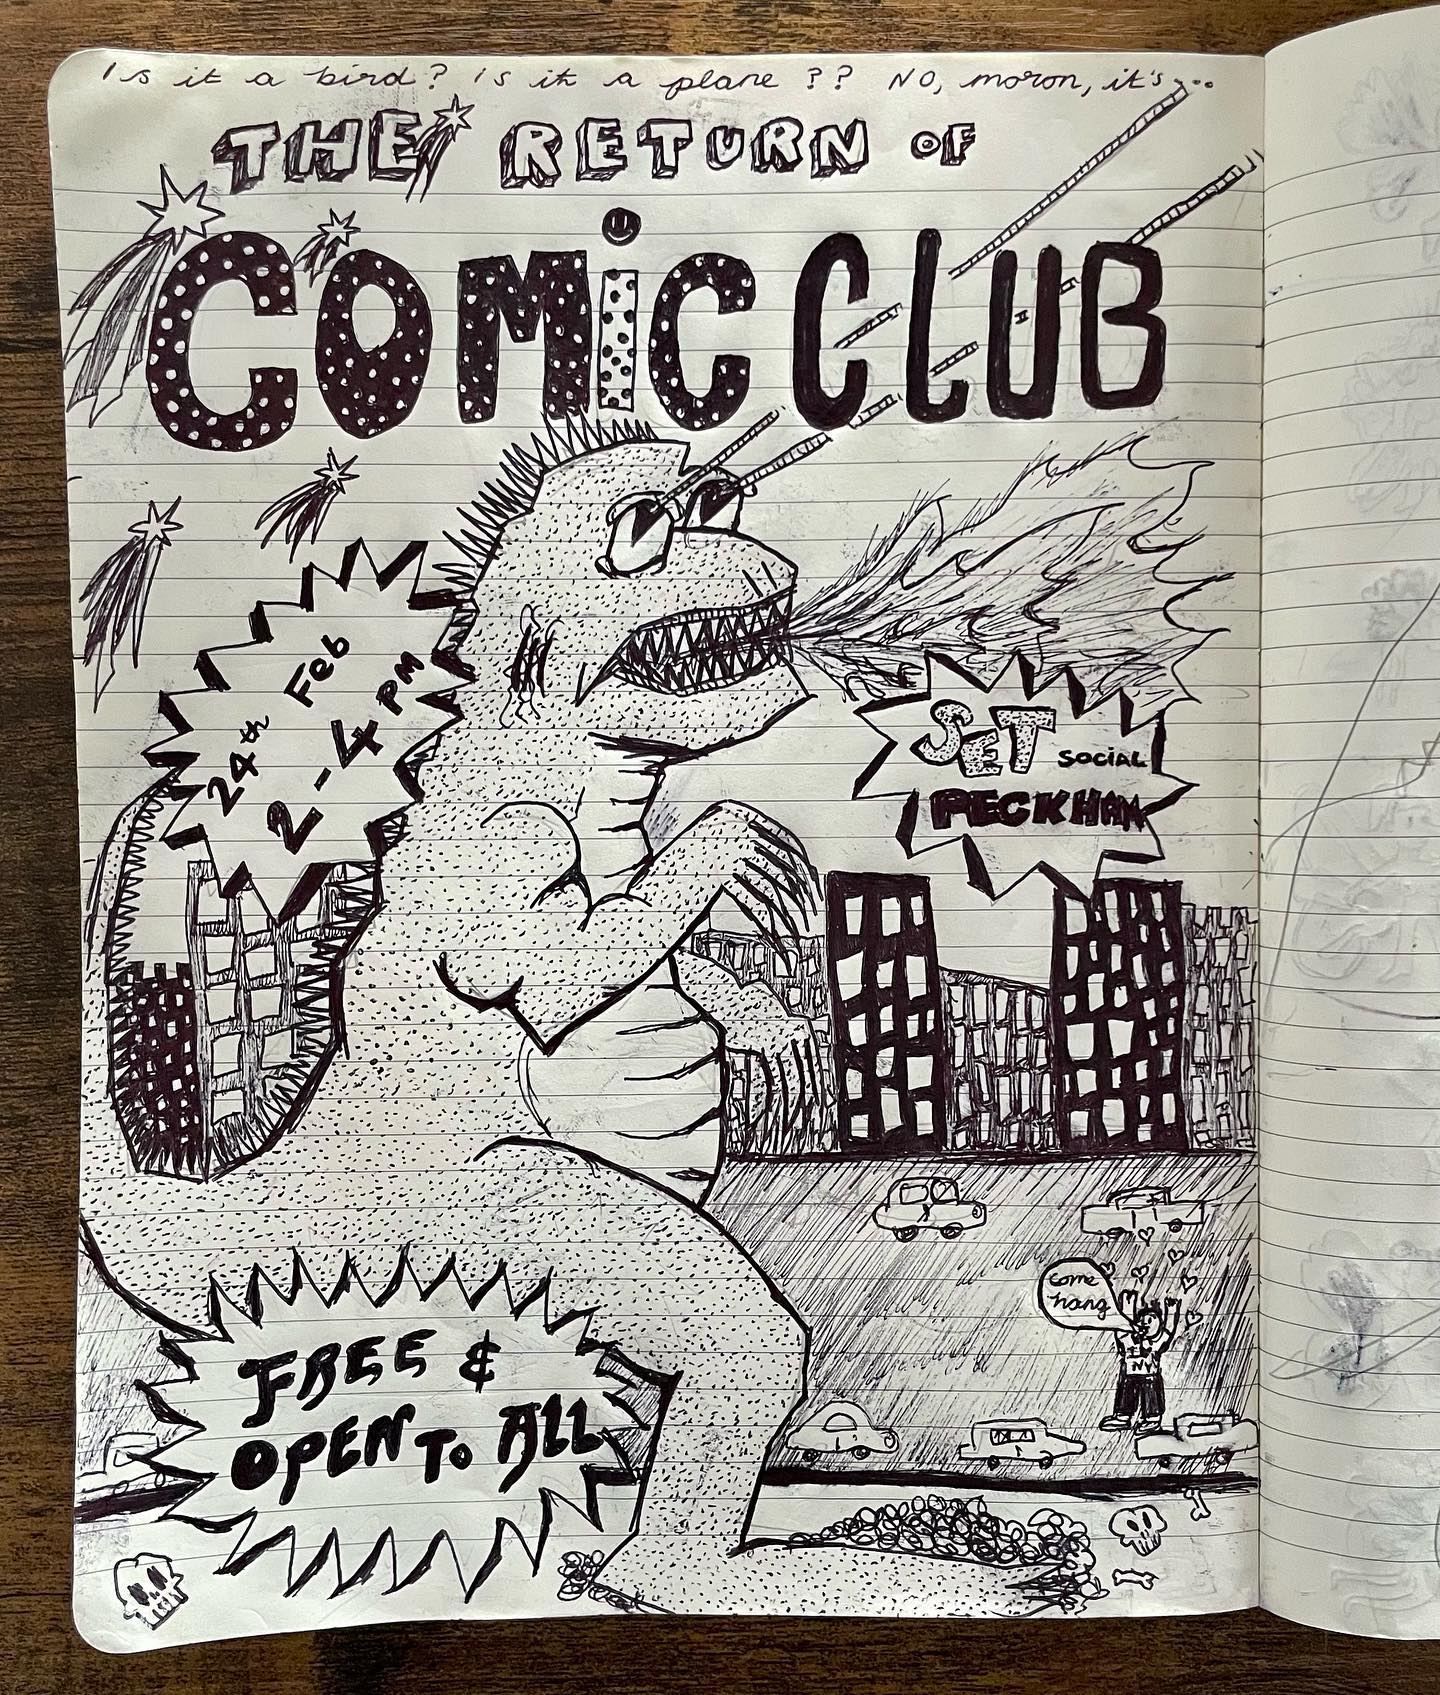 Is it a bird? is it a plane ?? NO, moron, it's...
THE RETURN OF
COMiC CLUB
24th Feb
2-4 PM
SET SOCIAL
PECKHAM
come
hang
I ♥
NY
FREE &
OPEN To ALL